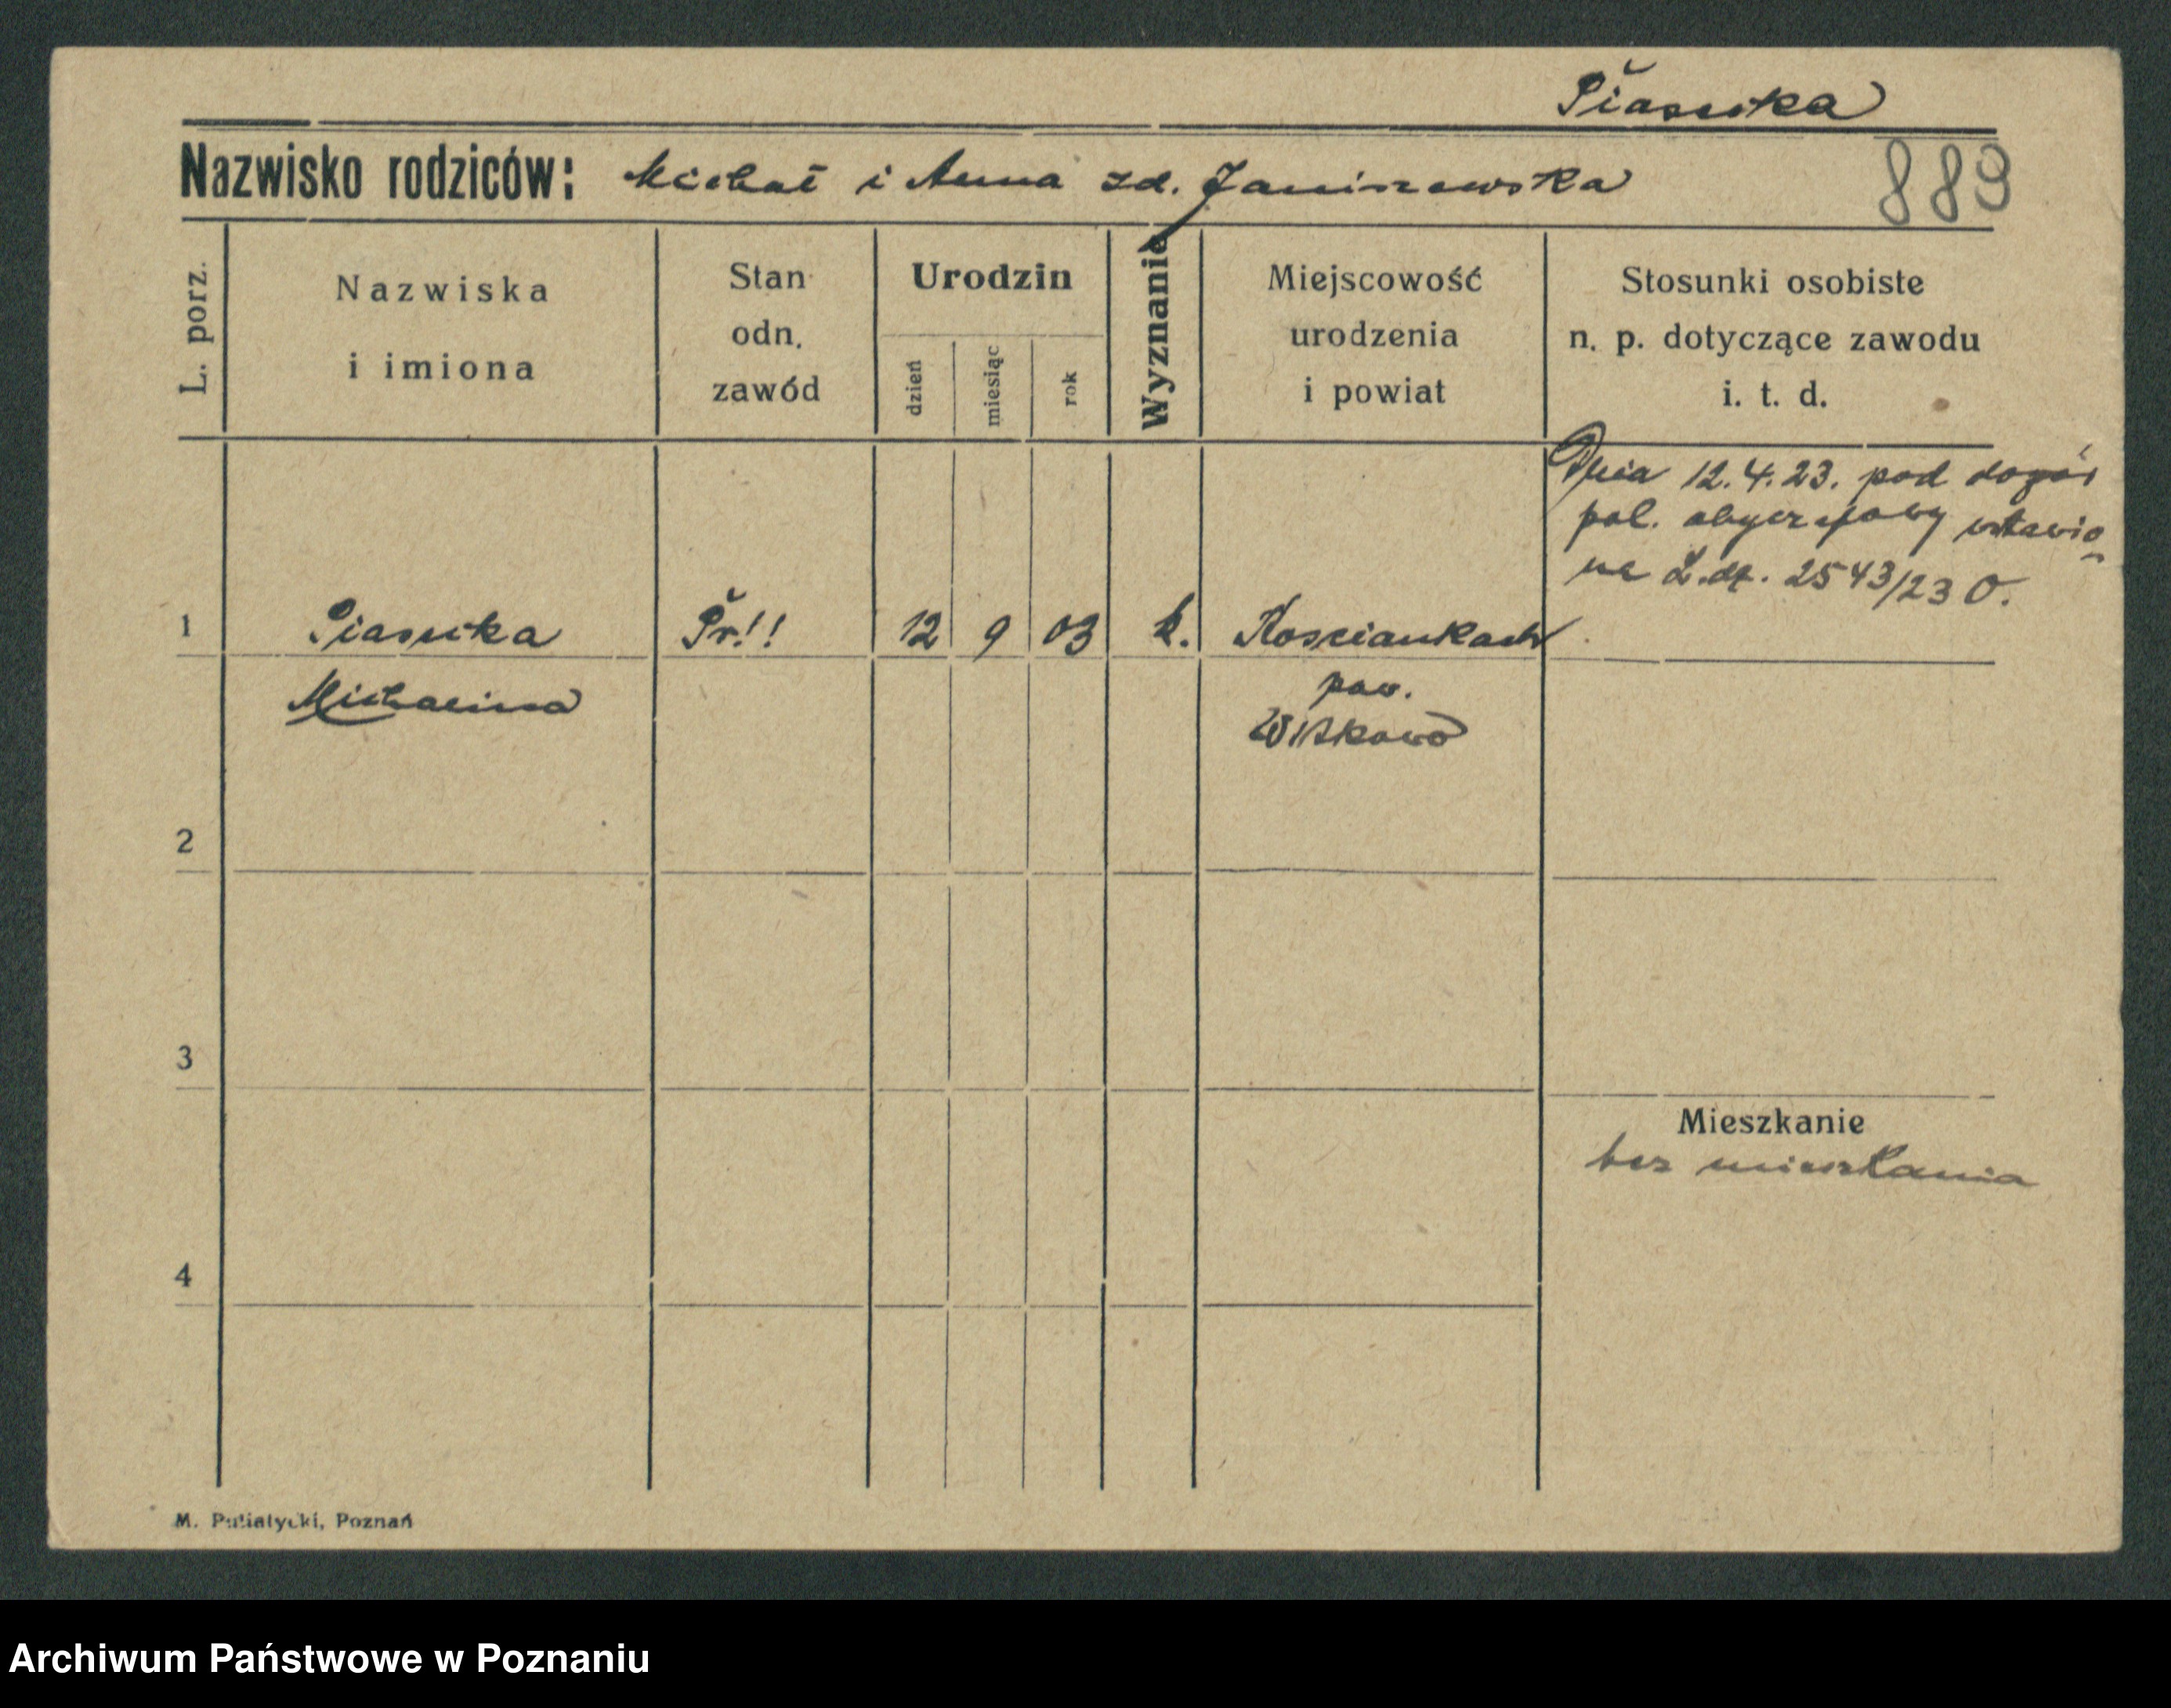 Piasecka
Nazwisko rodziców: Michał i Anna zd. Janiszewska
889
L. porz.
Nazwiska
i imiona
Stan
odn.
zawód
Urodzin
dzień
miesiąc
rok
Wyznanie
Miejscowość
urodzenia
i powiat
Stosunki osobiste
n. p. dotyczące zawodu
i. t. d.
Dnia 12.4.23. pod dozór
pol. obyczajowy wstawio
na L.dz. 2543/23 O.
1 Piasecka Pr.!! 12 9 03 k. Kosciankach
Michalina pow.
Witkowo
2
3
Mieszkanie
bez mieszkania
4
M. Putiatycki, Poznań
Archiwum Państwowe w Poznaniu